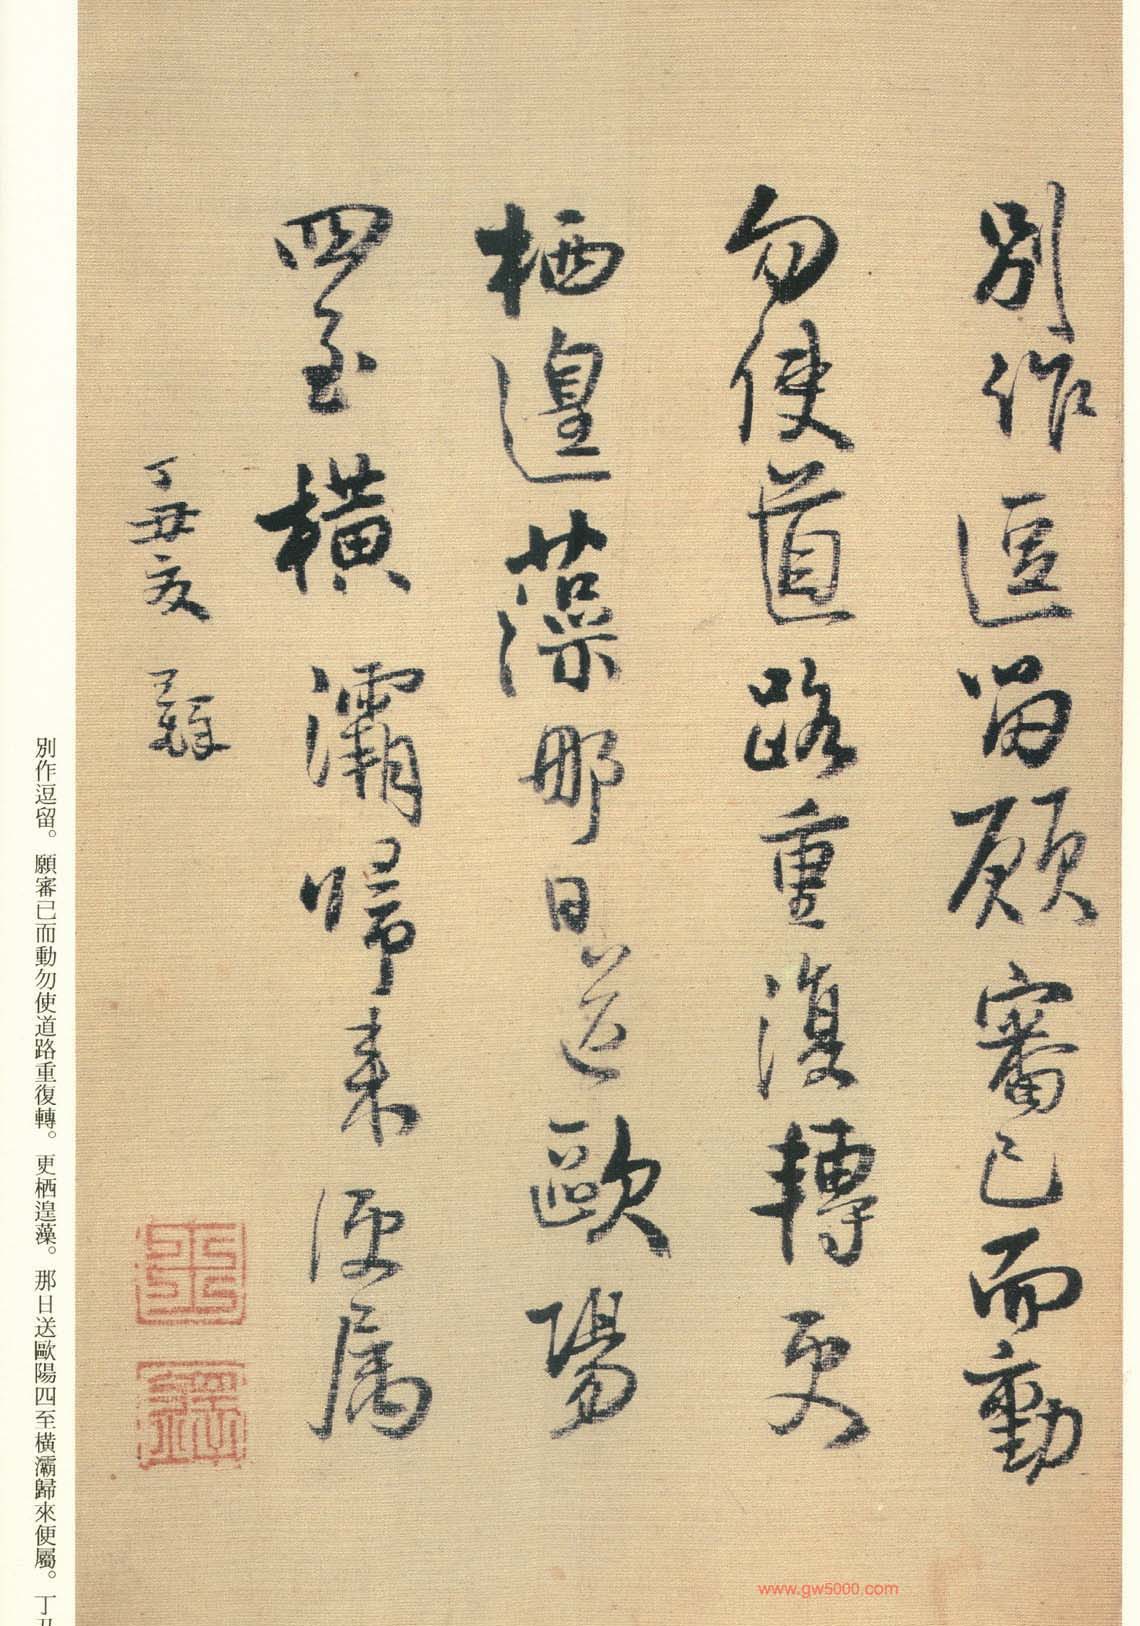 別作逗留願審己而動
勿使道路重復轉更
栖遑藻那日送歐陽
四至橫灞歸來便屬
丁丑友 王鐸
王鐸
別作逗留。願審己而動勿使道路重復轉。更栖遑藻。那日送歐陽四至橫灞歸來便屬。丁丑
www.gw5000.com